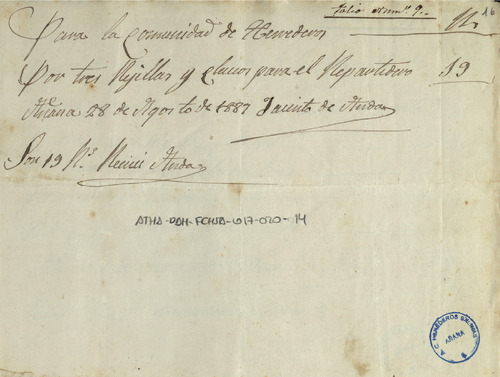 folio num.º 9. 16
Para la comunidad de Herederos Rs
Por tres Rejillas y clavos para el Repartidero 19
Añana 28 de Agosto de 1887 Jacinto de Anda
Son 19 Rs Recivi Anda
ATHA-DAH-FCHSA-017-020-14
HEREDEROS
AÑANA